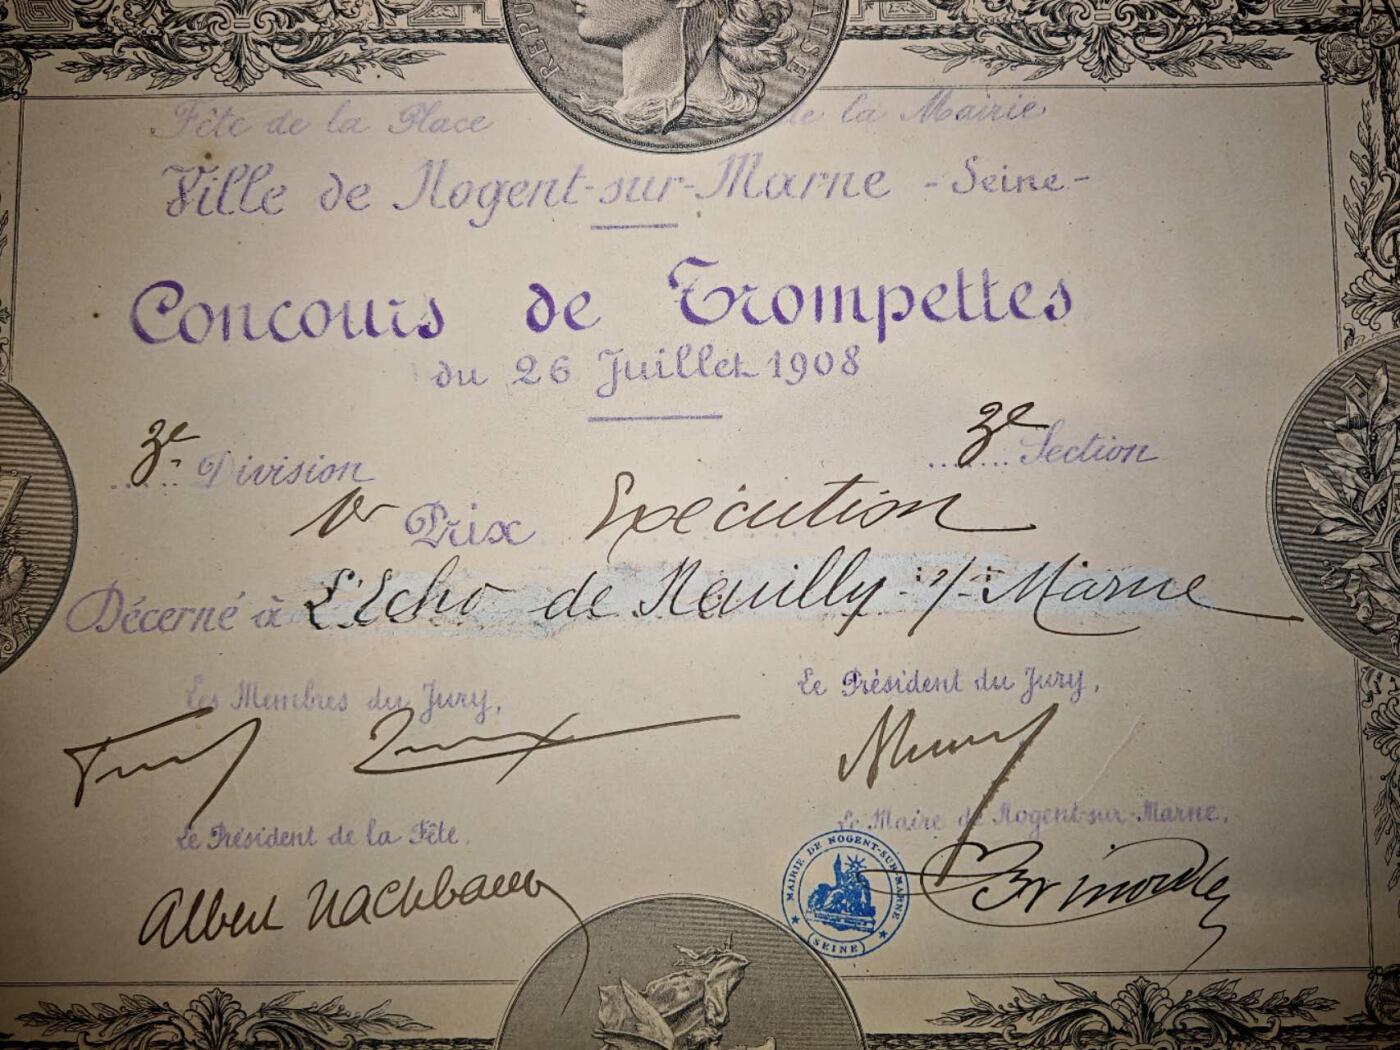 REPU AISE
Fête de la Place de la Mairie
Ville de Nogent-sur-Marne - Seine -
Concours de Trompettes
du 26 Juillet 1908
3e Division 3e Section
1er Prix Exécution
Décerné à L'Echo de Neuilly-s/-Marne
Les Membres du Jury, Le Président du Jury,
Le Président de la Fête. Le Maire de Nogent-sur-Marne.
Albert Nachbaur
MAIRIE DE NOGENT-SUR-MARNE
(SEINE)